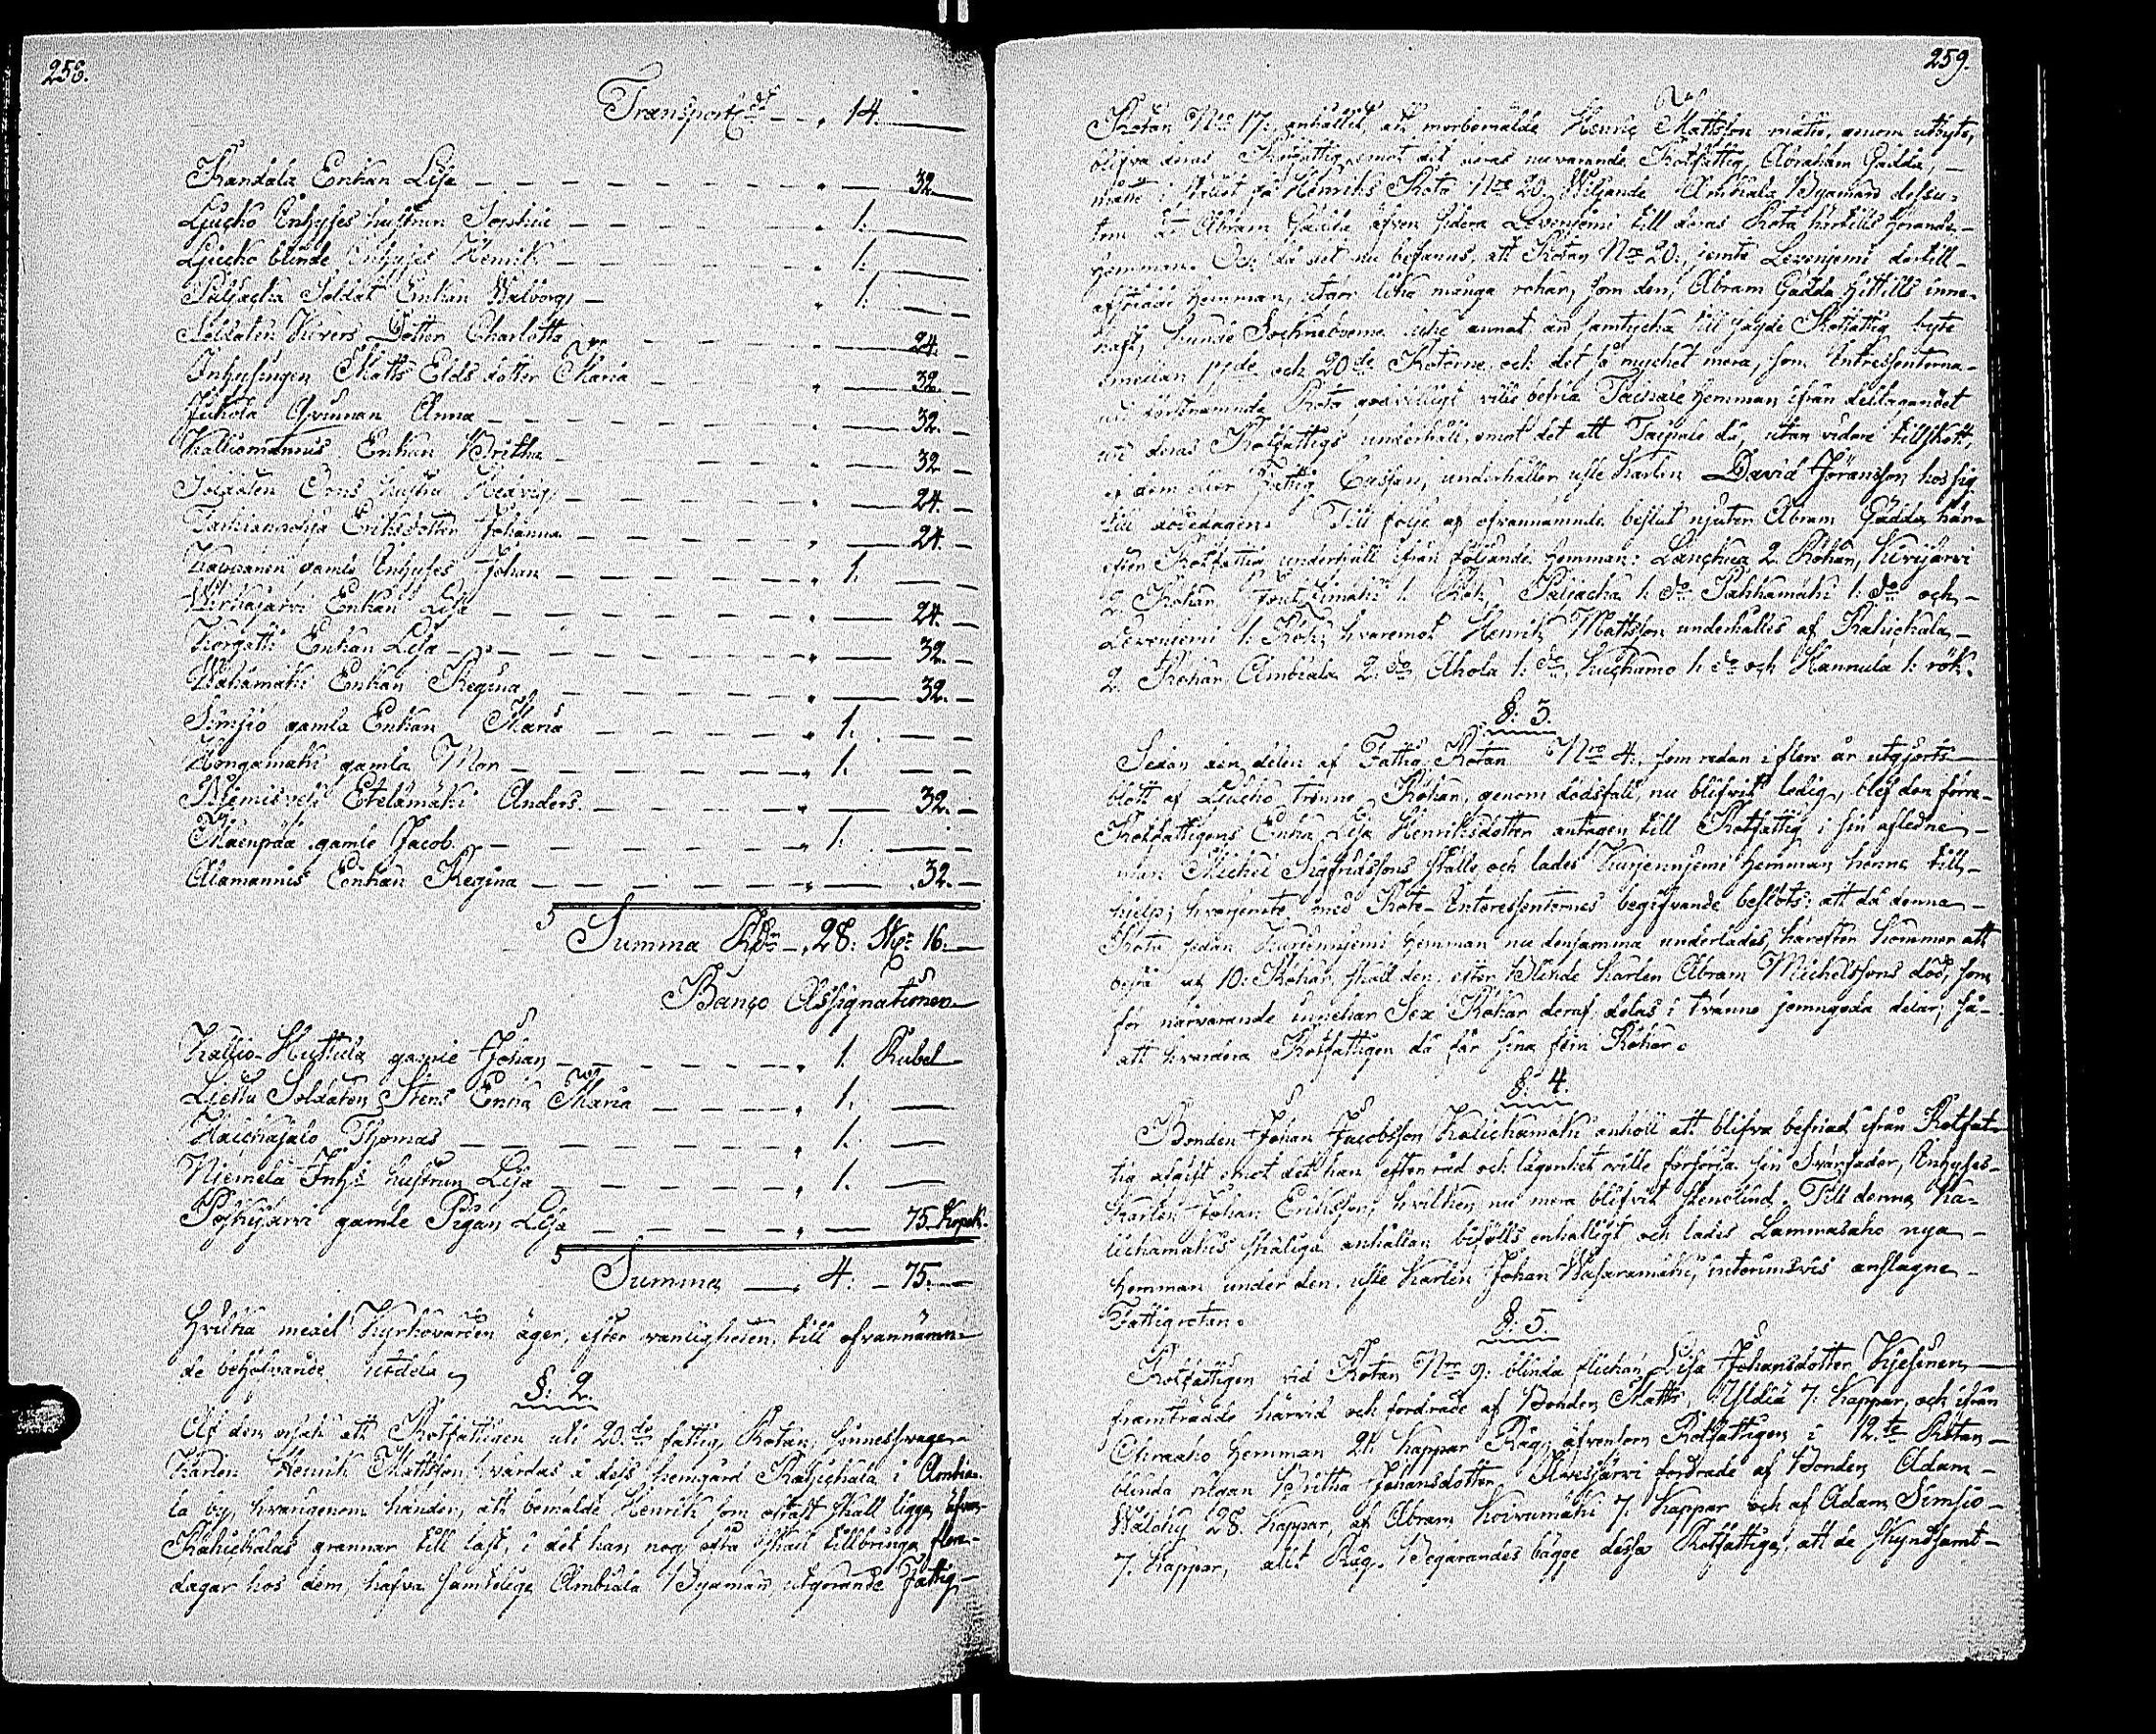 258.
Transport Rd - - „ 14.
Kandala Enkan Lisa - - - „ — 32 —
Ljucko Inhyses hustrun Sophia - - - „ 1. —
Ljucko blinde Inhyses Henrik - - - „ 1. —
Paljacka Soldat Enkan Walborg - „ 1. —
Soldaten Kivers Dotter Charlotta - - „ — 24. —
Inhysingen Matts Elds dotter Maria - - „ — 32. —
Juhola Qvinnan Anna - - - „ — 32. —
Kalliomannis Enkan Britha - - - „ — 32 —
Soldaten Örns hustru Hedvig - - - „ — 24. —
Eriksdotter Johanna - - - „ — 24. —
Kavoranen gamle Inhyses Johan - - - „ 1. —
Wirkajärvi Enkan Lisa - - - „ — 24. —
Korgatti Enkan Lisa - - - „ — 32. —
Wähämäki Enkan Regina - - - „ — 32. —
Simsiö gamla Enkan Maria - - - „ 1. —
Hongamäki gamla Mor - - - „ 1. —
Niemisvesi Etelämäki Anders - - - „ — 32. —
Mäenpää gamle Jacob - - - „ 1. —
Alamannis Enkan Regina - - - „ — 32. —
Summa Rdr - „ 28: Sk: 16. —
Banco Assignationer
Kallio-Huttula gamle Johan - - - „ 1. Rubel
Liettu Soldaten Stens Enka Maria - - - „ 1. —
Haickasalo Thomas - - - „ 1. —
Niemelä Inhs hustrun Lisa - - - „ 1. —
Poskijärvi gamle Pigan Lisa - - - „ — 75. Kopek.
Summa — „ 4: - 75. —
Hvilka medel Kyrkovärden äger, efter vanligheten, till ofvannämn-
de behöfvande utdela.
§: 2.
Af den orsak att Rotfattigen uti 20:de fattig Rotan, sinnessvage
Karlen Henrik Mattsson, vårdas å dess hemgård Rahickala i Ambia-
la by, hvarigenom händer, att bemälde Henrik som oftast skall ligga äfven
Rahickalas grannar till last, i det han nog ofta skall tillbringa flere
dagar hos dem, hafva samtelige Ambiala Byamän, utgörande Fattig-
259.
Rotan Nro 17, anhållit, att merbemälde Henric Mattsson måtte, genom utbyte,
blifva deras Rotfattig, emot det deras nuvarande Rotfattig, Abraham Gädda,
måtte i stället få Henriks Rota Nro 20. Viljande Ambiala Byamän dessu-
tom åt Abram Gädda äfven afträda Levonjemi till deras Rota härtills hörande
hemman. Och då det nu befanns, att Rotan Nro 20, jemte Levonjemi dertill
afträdde hemman, utgör lika många rökar, som den, Abram Gädda hittills inne-
haft, kunde Sockneboerne icke annat än samtycka till sagde Rotfattig byte
emellan 17de och 20de Roterne och det så mycket mera, som Intressenterna
ur förstnämnde Rota godvilligt ville befria Taipale hemman ifrån deltagandet
uti deras Rotfattigs underhåll, emot det att Taipale då, utan vidare tillskott,
af dem eller Fattig Cassan, underhåller usle Karlen David Jöransson hos sig
till dödedagen. Till följe af ofvannämnde beslut njuter Abram Gädda här-
efter Rotfattig underhåll ifrån följande hemman: Lauckua 2. Rökar, Kivijärvi
2. Rökar, 1. Rök, Paljacka 1. do, Pakkamäki 1. do och
Levonjemi 1. Rök; hvaremot Henrik Mattsson underhålles af Rahickala
2. Rökar, Ambiala 2. do, Ahola 1. do, Kuckamo 1. do och Hannula 1. rök.
§: 3.
Sedan den delen af Fattig Rotan Nro 4:, som redan i flere år utgjorts
blott af Ljucko trenne Rökar, genom dödsfall, nu blifvit ledig, blef den förre
Rotfattigens Enka Lisa Henriksdotter antagen till Rotfattig i sin afledne
man Michel Sigfridssons ställe och lades Karjenniemi hemman henne till
hjelp; hvarjemte med Rote-Interessenternes begifvande beslöts: att då denne
Rota sedan Karjenniemi hemman nu densamma underlades, härefter kommer att
bestå af 10: Rökar, skall den, efter blinde karlen Abram Michelssons död, som
för närvarande innehar Sex Rökar deraf, delas i tvänne jemngoda delar; så
att hvardera Rotfattigen då får sina fem Rökar.
§: 4.
Bonden Johan Jacobsson Kalichamäki anhöll att blifva befriad ifrån Rotfat-
tig afgift emot det han efter råd och lägenhet ville försörja sin Svärfader, Inhyses-
Karlen Johan Eriksson, hvilken nu mera blifvit stenblind. Till denne Ka-
lichamäkis skäliga anhållan bifölls enhälligt och lades Lammasaho nya
hemman under den, usle karlen Johan Wasaramäki, interimsvis anslagne
Fattigrotan.
§: 5.
Rotfattigen vid Rotan Nro 9: blinda flickan Lisa Johansdotter Kjesinen
framträdde härvid och fordrade af Bonden Matts 7: kappar, och ifrån
Ohraaho hemman 21: kappar Råg, äfvensom Rotfattigen i 12:te Rotan
blinda pigan Britha Johansdotter Alvesjärvi fordrade af Bonden Adam
28. kappar, af Abram Koivumäki 7. kappar och af Adam Simsiö
7. kappar, allt Råg. Begärandes bägge dessa Rotfattiga, att de skyndsamt